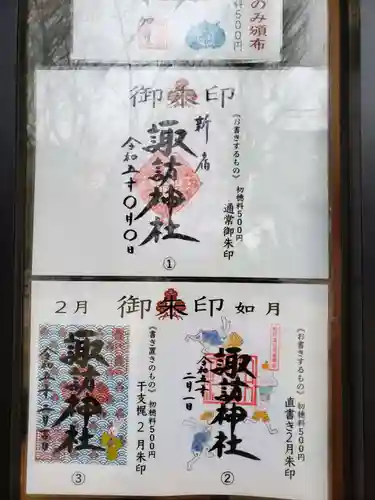 のみ頒布
料500円
御朱印
《お書きするもの》 初穂料500円
通常御朱印
新宿
諏訪神社
令和五十〇月〇日
①
2月 御朱印 如月
《お書きするもの》 初穂料500円
直書き2月朱印
諏訪神社
二月一日
②
《書き置きのもの》 初穂料500円
干支梶2月朱印
諏訪神社
③